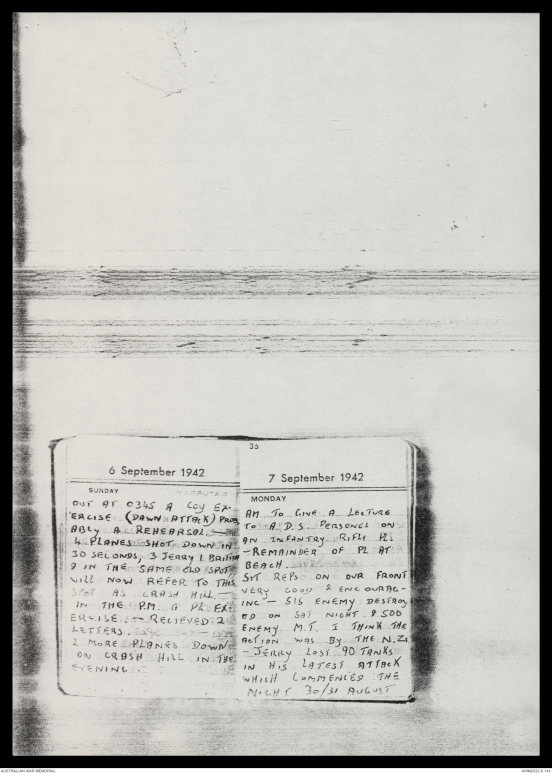 35
6 September 1942
SUNDAY
OUT AT 0345 A COY EX-
ERCISE (DAWN ATTACK) PROB
ABLY A REHEARSAL —
4 PLANES SHOT DOWN IN
30 SECONDS, 3 JERRY 1 BRITISH
& IN THE SAME OLD SPOT
WILL NOW REFER TO THIS
SPOT AS CRASH HILL —
IN THE P.M. A PL. EX-
ERCISE. — RECIEVED 2
LETTERS.
2 MORE PLANES DOWN
ON CRASH HILL IN THE
EVENING.
7 September 1942
MONDAY
AM TO GIVE A LECTURE
TO A.D.S. PERSONEL ON
AN INFANTRY RIFLE PL.
—REMAINDER OF PL AT
BEACH.
SIT REPS ON OUR FRONT
VERY GOOD & ENCOURAG-
ING — 515 ENEMY DESTROY
ED ON SAT NIGHT & 500
ENEMY M.T. I THINK THE
ACTION WAS BY THE N.Zs
— JERRY LOST 90 TANKS
IN HIS LATEST ATTACK
WHICH COMMENCED THE
NIGHT 30/31 AUGUST
AUSTRALIAN WAR MEMORIAL